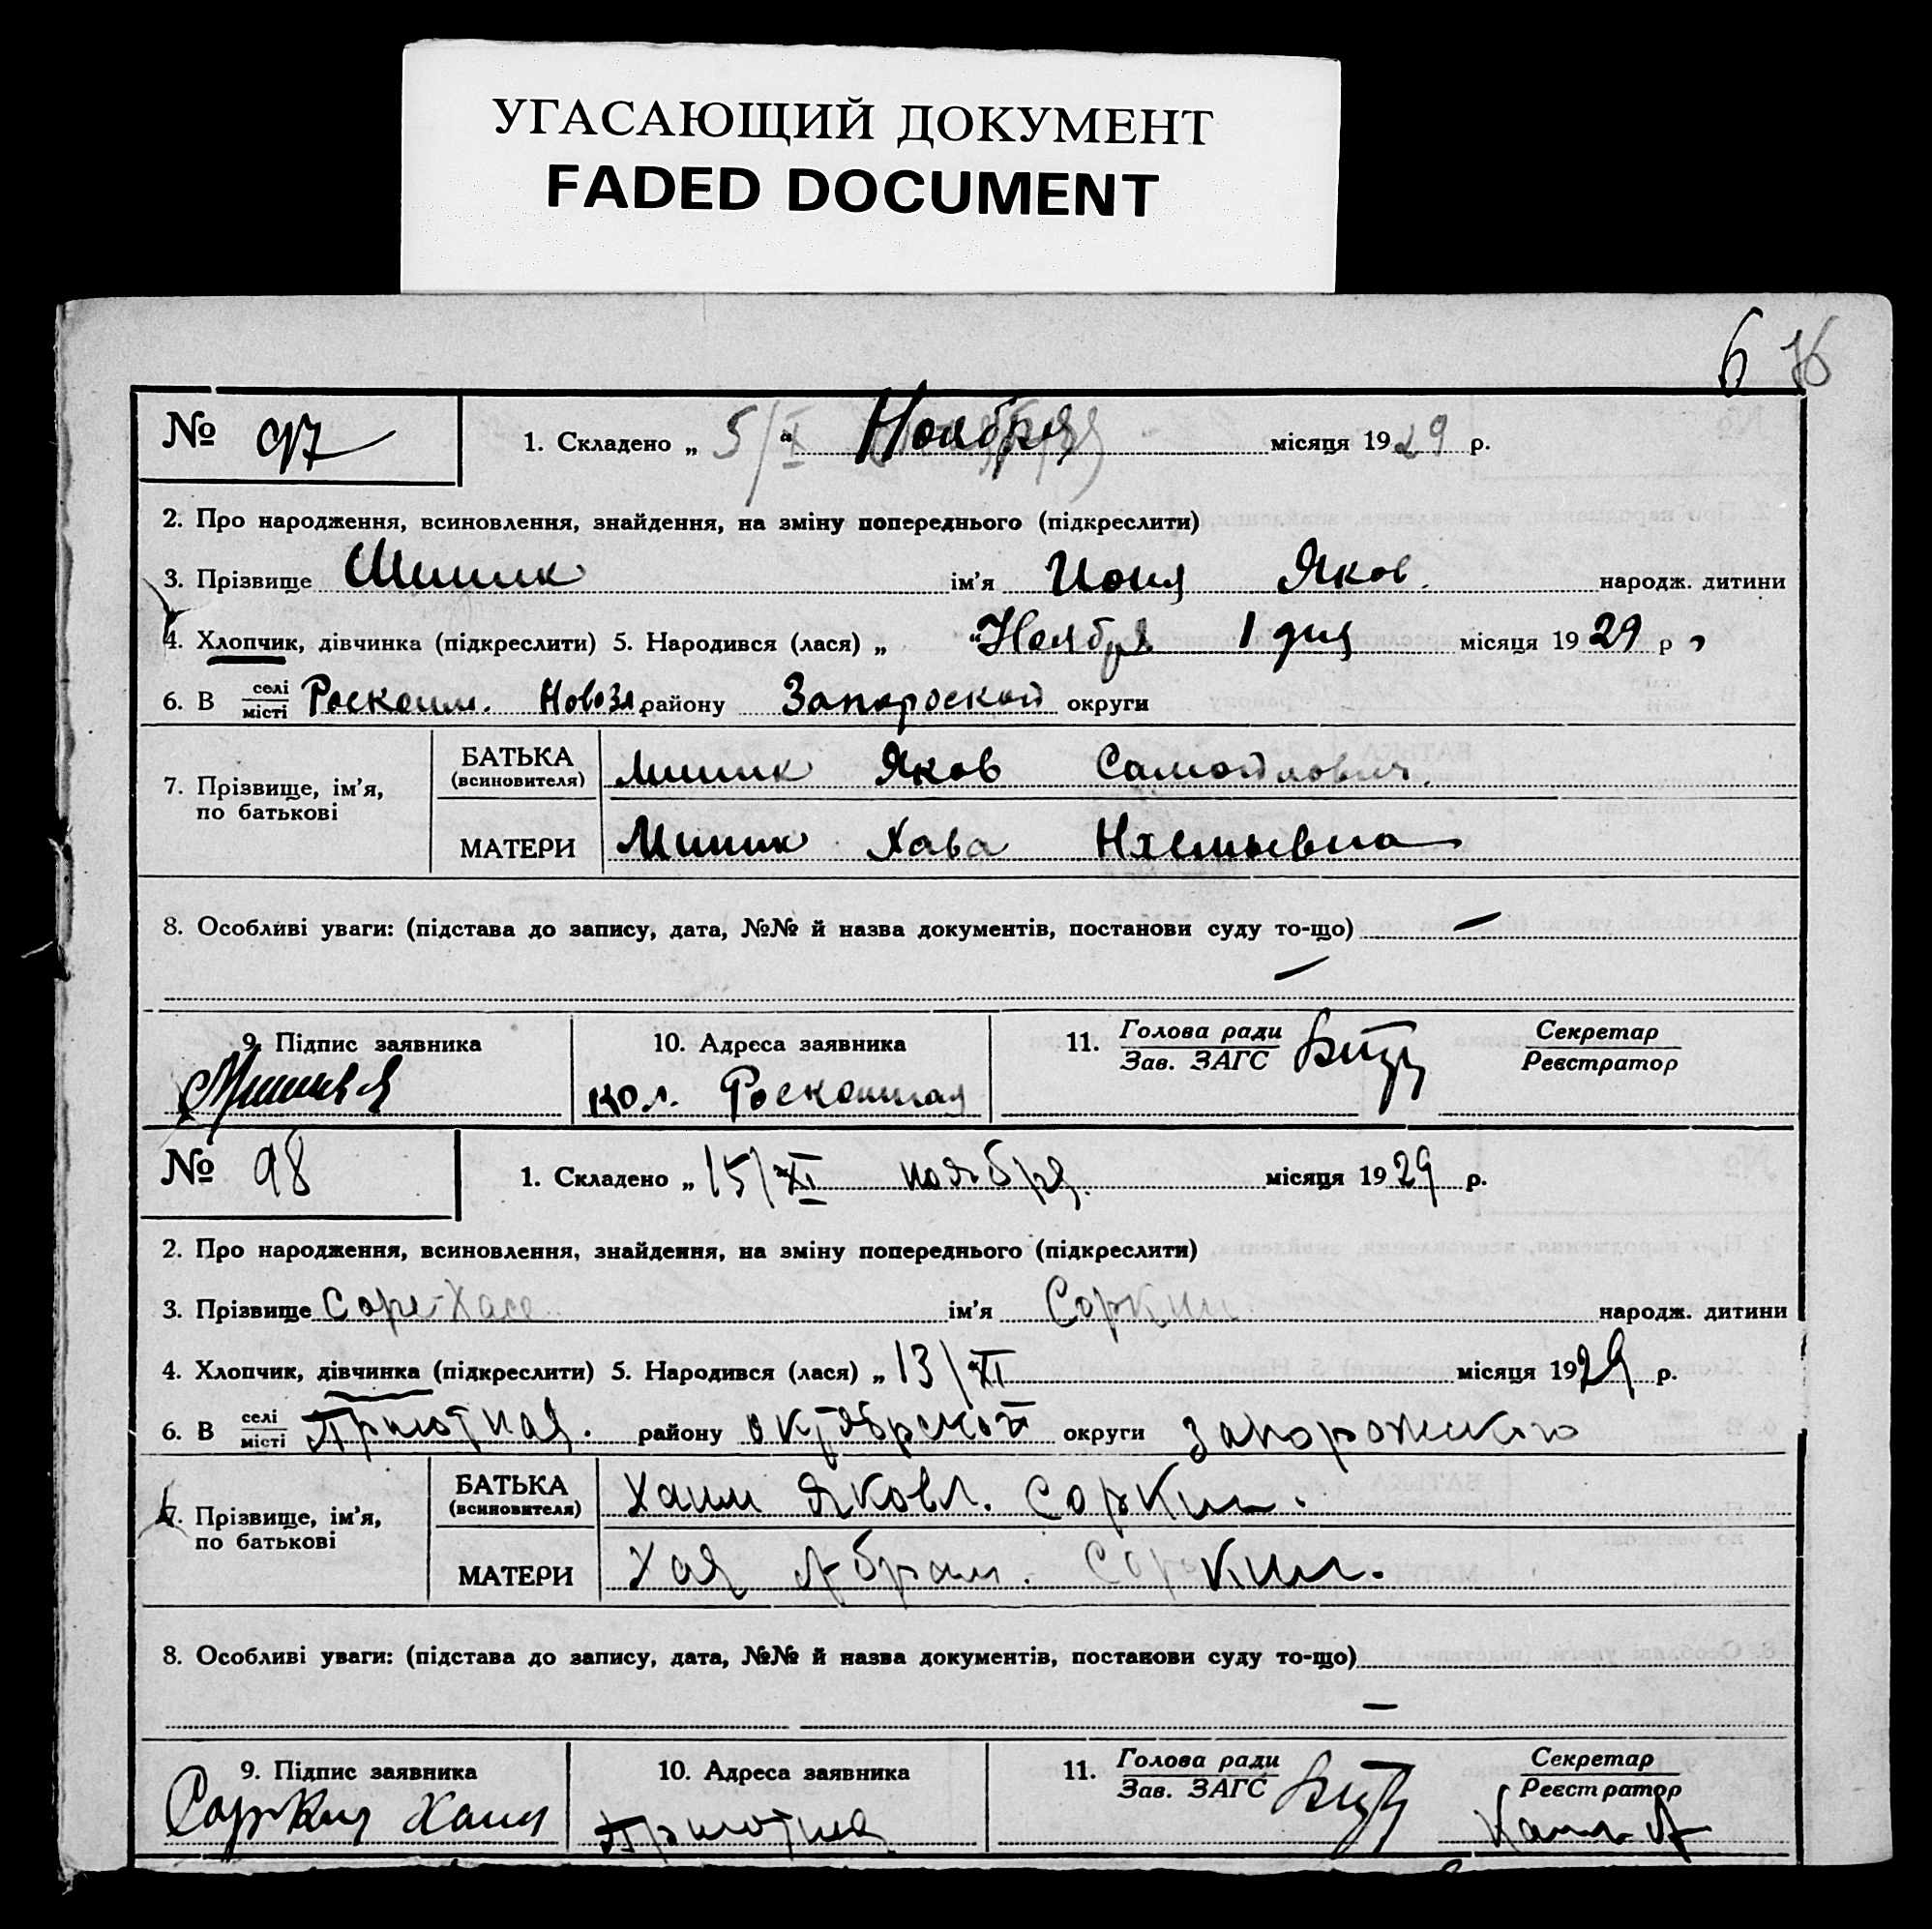 УГАСАЮЩИЙ ДОКУМЕНТ
FADED DOCUMENT
6 16
№ 97 1. Складено „ 5/X “ Ноября місяця 1929 р.
2. Про народження, всиновлення, знайдення, на зміну попереднього (підкреслити)
3. Прізвище ім’я Яков. народж. дитини
4. Хлопчик, дівчинка (підкреслити) 5. Народився (лася) „ “ Ноября 1 дня місяця 1929 р,
6. В селі місті Роскошн. Новозл. району Запороской округи
7. Прізвище, ім’я, по батькові
БАТЬКА (всиновителя) Яков Самойлович.
МАТЕРИ Хава
8. Особливі уваги: (підстава до запису, дата, №№ й назва документів, постанови суду то-що) —
—
9. Підпис заявника 10. Адреса заявника 11. Голова ради Зав. ЗАГС Секретар Реєстратор
кол. Роскошная
№ 98 1. Складено „ 15/XI “ ноября. місяця 1929 р.
2. Про народження, всиновлення, знайдення, на зміну попереднього (підкреслити)
3. Прізвище Соре-Хасе ім’я Соркин. народж. дитини
4. Хлопчик, дівчинка (підкреслити) 5. Народився (лася) „ 13/XI “ місяця 1929 р.
6. В селі місті Приютная. району октябрской округи запорожского
7. Прізвище, ім’я, по батькові
БАТЬКА (всиновителя) Хаим Яковл. Соркин.
МАТЕРИ Хая Абрам. Соркин.
8. Особливі уваги: (підстава до запису, дата, №№ й назва документів, постанови суду то-що)
—
9. Підпис заявника 10. Адреса заявника 11. Голова ради Зав. ЗАГС Секретар Реєстратор
Соркин Хаим Приютная